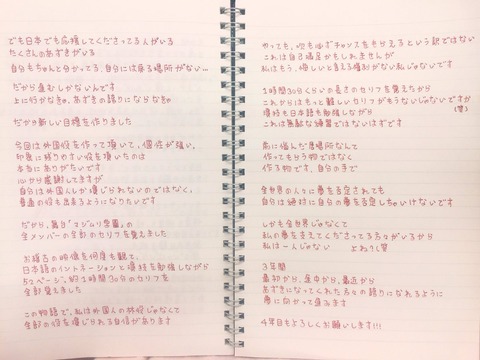 でも日本でも応援してくださってる人がいる
たくさんのあずきがいる
自分もちゃんと分かってる、自分には帰る場所がない…
だから進むしかないんです
上に行かなきゃ、あずきの誇りにならなきゃ
だから新しい目標を作りました
今回は外国役を作って頂いて、個性が強い、
印象に残りやすい役を頂いたのは
本当にありがたいです
心から感謝してますが
自分は外国人しか演じられないのではなく、
普通の役も出来るようになりたいです
だから、舞台「マジムリ学園」の
全メンバーの全部のセリフを覚えました
お稽古の映像を何度も観て、
日本語のイントネーションと演技を勉強しながら
52ページ、約1時間30分のセリフを
全部覚えました
この物語で、私は外国人の林役じゃなくて
全部の役を演じられる自信があります
やっても、次も必ずチャンスをもらえるという訳ではない
これは自己満足かもしれませんが
私はもう、悔しいと言える権利がない私じゃないです
1時間30分くらいの長さのセリフを覚えたから
これからはもっと難しいセリフがもう怖いじゃないですか(笑)
演技も日本語も勉強しながら
これは無駄な練習ではないはずです
前に悩んだ居場所なんて
作ってもらう物ではなく
作る物です、自分の手で
全世界の人々に夢を否定されても
自分は絶対に自分の夢を否定しちゃいけないです
しかも全世界じゃなくて
私の夢を支えてくださってる方々がいるから
私は一人じゃない よね?(笑)
3年間
最初から、途中から、最近から
あずきになってくれた方々の誇りになれるように
夢に向かって進みます
4年目もよろしくお願いします!!!